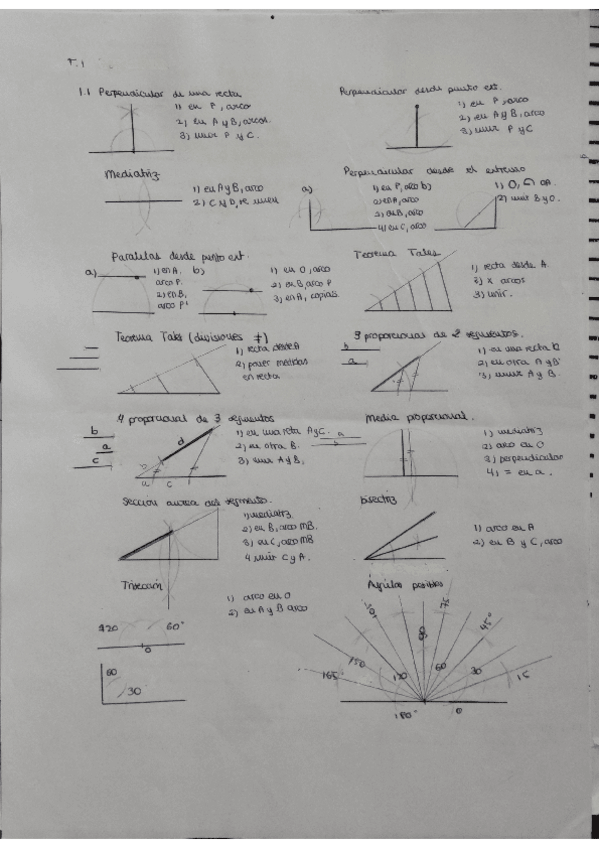 T.1
1.1 Perpendicular de una recta
1) en P, arco
2) en A y B, arcos.
3) unir P y C.
Perpendicular desde punto ext.
1) en P, arco
2) en A y B, arco
3) unir P y C
Mediatriz
1) en A y B, arco
2) C y D, se unen
Perpendicular desde el extremo
a)
1) en P, arco
2) en A, arco
3) en B, arco
4) en C, arco
b)
1) O, OA.
2) unir B y O.
Paralelas desde punto ext.
a)
1) en A, arco P.
2) en B, arco P'
b)
1) en O, arco
2) en B, arco P
3) en A, copiais
Teorema Tales
1) recta desde A.
2) x arcos
3) unir.
Teorema Tales (divisiones ≠)
1) recta desde A
2) poner medidas
en recta
3 proporcional de 2 segmentos.
b
a
1) en una recta b
2) en otra A y B
3) unir A y B.
4 proporcional de 3 segmentos
b
a
c
d
b
a c
1) en una recta A y C.
2) en otra B.
3) unir A y B.
Media proporcional.
a
b
1) mediatriz
2) arco en O
3) perpendicular
4) = en a.
Sección aurea del segmento.
1) mediatriz
2) en B, arco MB.
3) en C, arco MB
4 unir C y A.
bisectriz
1) arco en A
2) en B y C, arco
Trisección
1) arco en O
2) en A y B arco
120 60°
O
60
30
Ángulos posibles
165 150 120 105 90 75 60 45° 30 15
180° 0